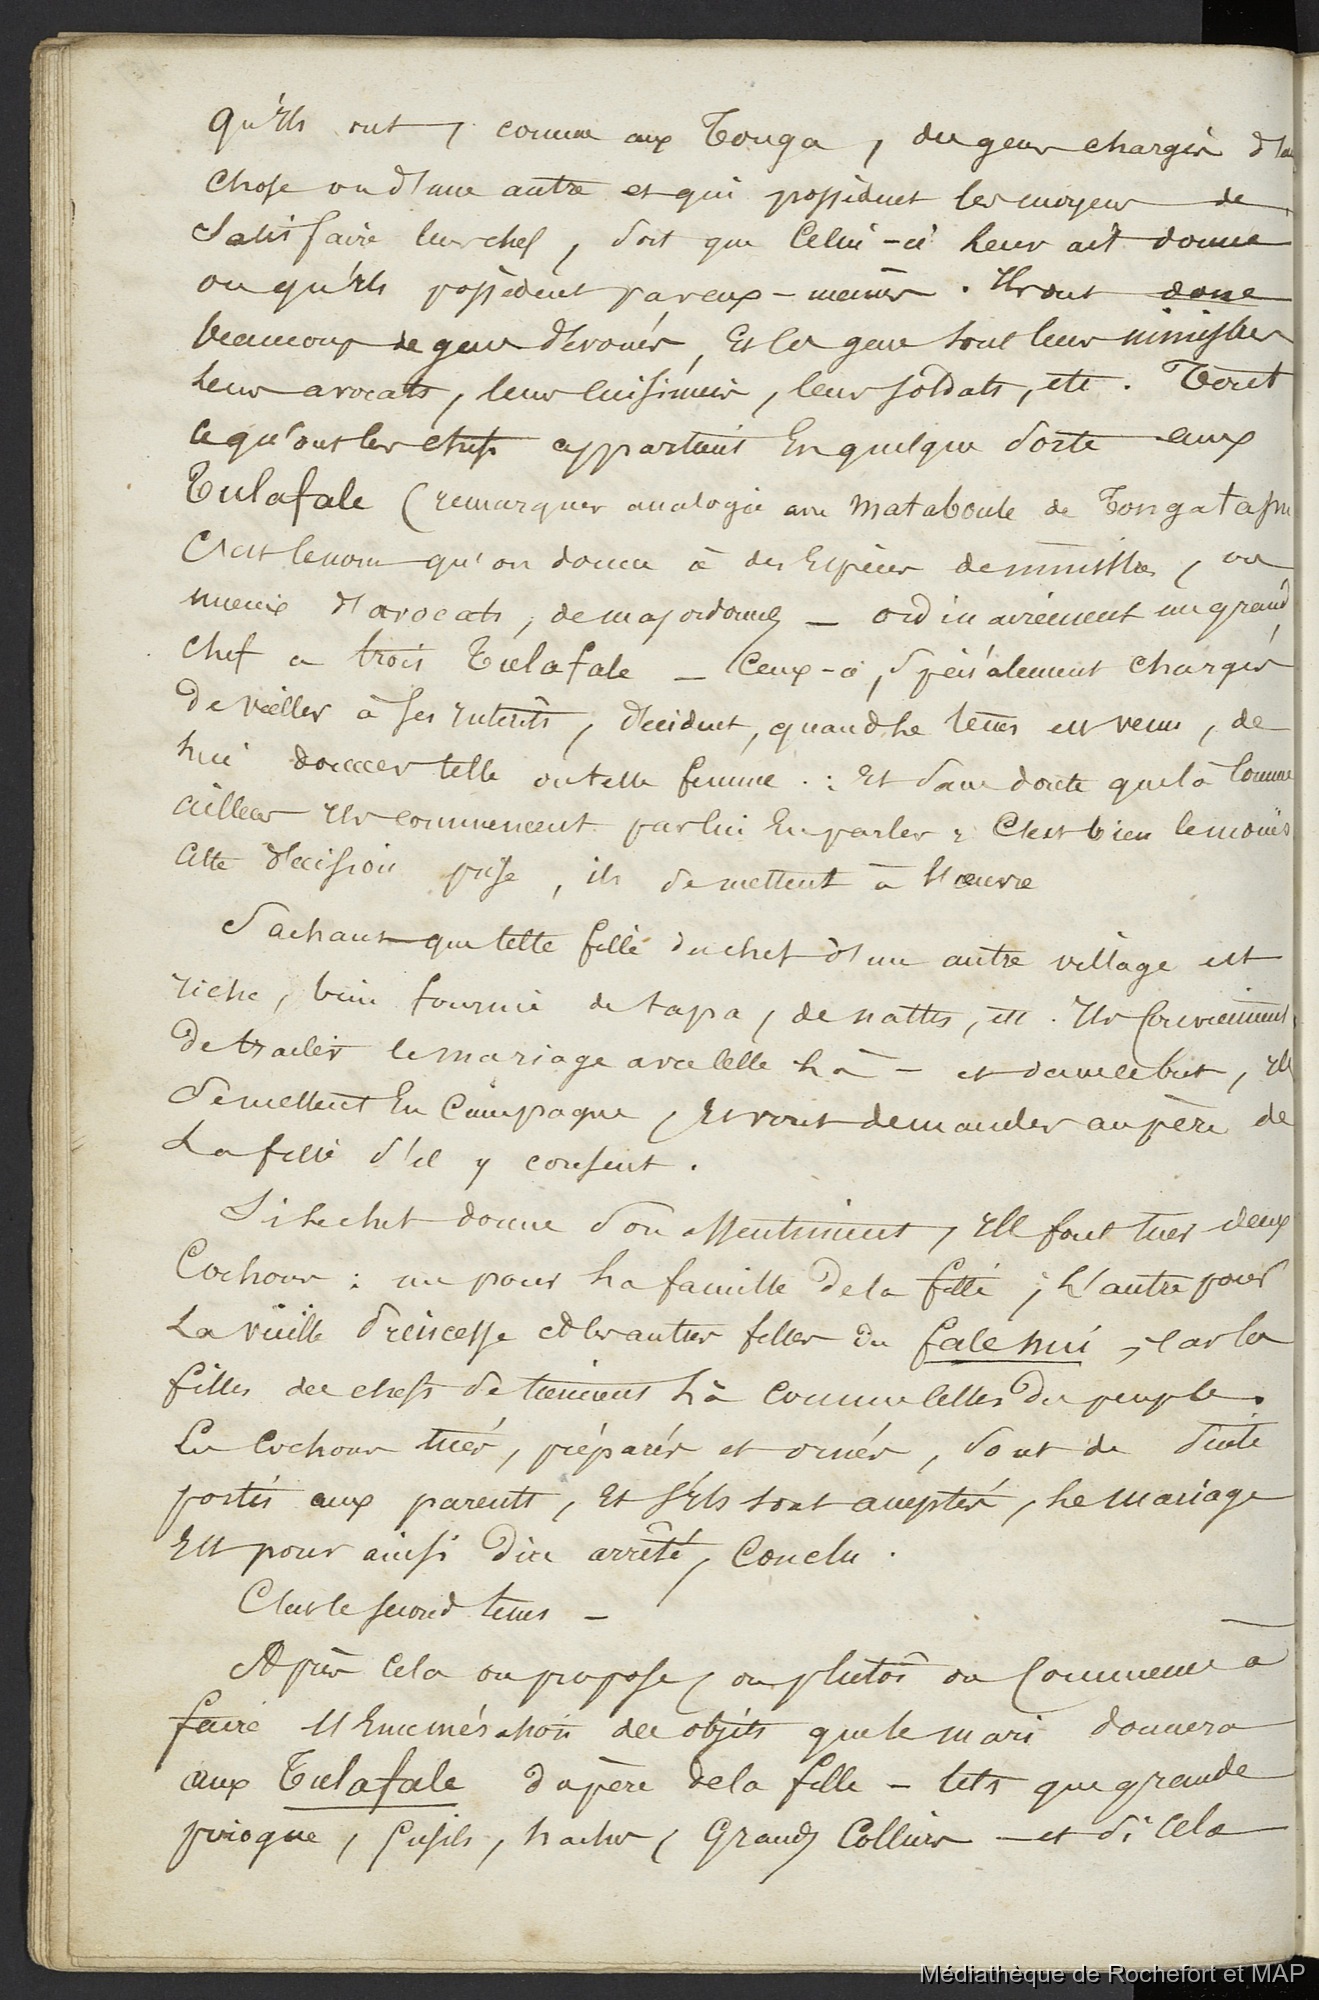 qu'ils ont, comme aux Tonga, des gens chargés d'une
chose ou d'une autre et qui possèdent les moyens de
satisfaire leur chef, soit que celui-ci leur ait donné
ou qu'ils possèdent par eux-mêmes. Ils ont donc
beaucoup de gens dévoués, et ces gens sont leurs ministres
leurs avocats, leurs cuisiniers, leurs soldats, etc. Tout
ce qu'ont les chefs appartient en quelque sorte aux
Tulafale (remarquer analogie avec Mataboule de Tongatapu
C'est le nom qu'on donne à des espèces de ministres, ou
mieux d'avocats, de majordomes – ordinairement un grand
chef a trois Tulafale – Ceux-ci, spécialement chargés
de veiller à ses intérêts, décident, quand le tems est venu, de
lui donner telle ou telle femme. : Et sans doute que là comme
ailleurs ils commencent par lui en parler : C'est bien le moins
Cette décision prise, ils se mettent à l'œuvre
Sachant que telle fille du chef d'un autre village est
riche, bien fournie de tapa, de nattes, etc. Ils conviennent
de traiter le mariage avec celle là – et dans ce but, ils
se mettent en campagne, et vont demander au père de
la fille s'il y consent.
Si le chef donne son assentiment, ils font tuer deux
cochons : un pour la famille de la fille ; l'autre pour
la vieille Princesse et les autres filles du fale nui, car les
filles des chefs se tiennent là comme celles du peuple.
Les cochons tués, préparés et ornés, sont de suite
portés aux parents, et s'ils sont acceptés, le mariage
est pour ainsi dire arrêté, conclu.
C'est le second tems –
Après cela on propose, ou plutôt on commence à
faire l'énumération des objets que le mari donnera
aux Tulafale du père de la fille – tels que grande
pirogue, fusils, haches, grands colliers – et si cela
Médiathèque de Rochefort et MAP